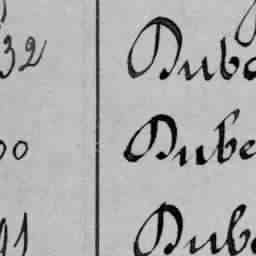 32 Dubo
00 Dube
91 Dube